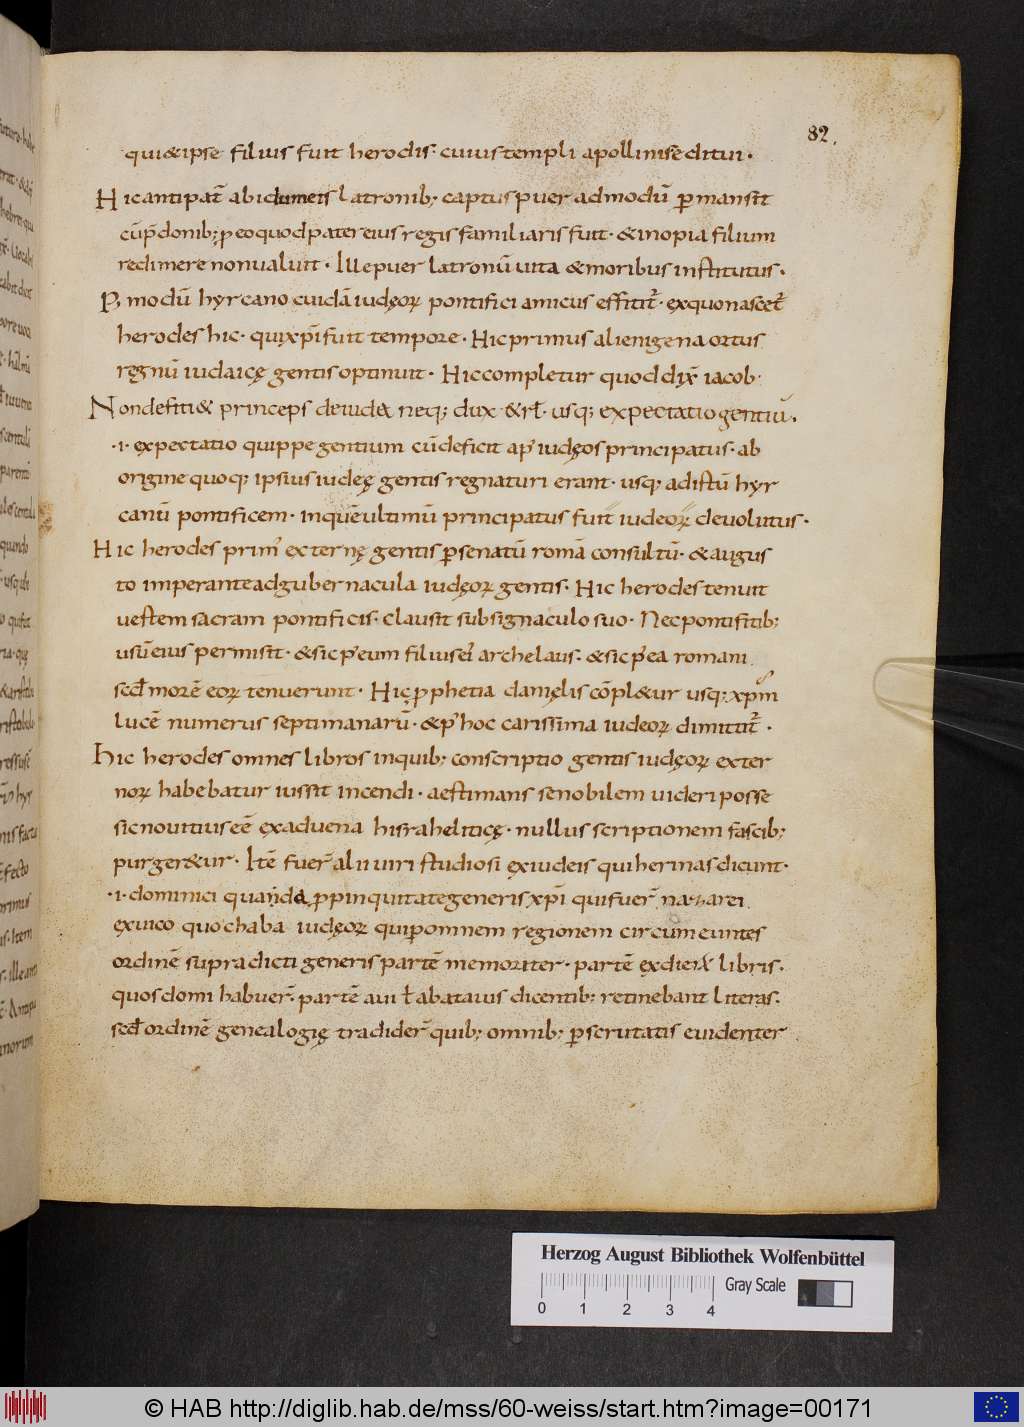 82.
qui&ipse filius fuit herodis. cuius templi apollinis editui.
Hic antipat̄ abidumeis latronib; captus puer admodū ꝑmansit
cū p̄donib; ꝓ eo quod pater eius regis familiaris fuit. & inopia filium
redimere non ualuit. Ille puer latronū uita & moribus institutus.
P; modū hyrcano cuidā iudęoꝝ pontifici amicus effitit̄. ex quo nascet̄
herodes hic. qui xp̄i fuit tempore. Hic primus alienigena ortus
regnū iudaicę gentis optinuit. Hic completur quod dix̄ iacob.
Non defiti& princeps de iuda neq; dux &rł. usq; expectatio gentiū.
.i. expectatio quippe gentium cū deficit ap̄ iudęos principatus. ab
origine quoq; ipsius iudeę gentis regnaturi erant. usq; adistū hyr
canū pontificem. in quē ultimū principatus fuit iudeoꝝ deuolutus.
Hic herodes prim' externę gentis ꝑ senatū romā consultū. & augus
to imperante ad gubernacula iudęoꝝ gentis. Hic herodes tenuit
uestem sacram pontificis. clausit sub signaculo suo. Nec pontifitib;
usū eius permisit. & sic p' eum filius ei' archelaus. & sic p' ea romani
sed̄ morē eoꝝ tenuerunt. Hic ꝓphetia danięlis cōpl&ur usq; xp̄m
lucē numerus septimanarū. & p' hoc carissima iudeoꝝ dimittit̄.
Hic herodes omnes libros in quib; conscriptio gentis iudęoꝝ exter
noꝝ habebatur iussit incendi. aestimans se nobilem uideri posse
sic nouitius eē ex aduena hisraheliticę. nullus scriptionem fascib;
purger&ur. Itē fuer̄ alii uiri studiosi ex iudeis qui hermas dicunt.
.i. dominici quanda ꝓpinquitate generis xp̄i qui fuer̄ nazarei
ex uico quo chaba iudęoꝝ qui ꝑ omnem regionem circumeuntes
ordinē supradicti generis partē memoriter. partē ex dieiꝝ libris.
quos domi habuer̄. partē aui ł abatauis dicentib; retinebant literas.
sed̄ ordinē genealogię tradider̄ quib; omnib; ꝑscrutatis euidenter
Herzog August Bibliothek Wolfenbüttel
Gray Scale
0 1 2 3 4
© HAB http://diglib.hab.de/mss/60-weiss/start.htm?image=00171